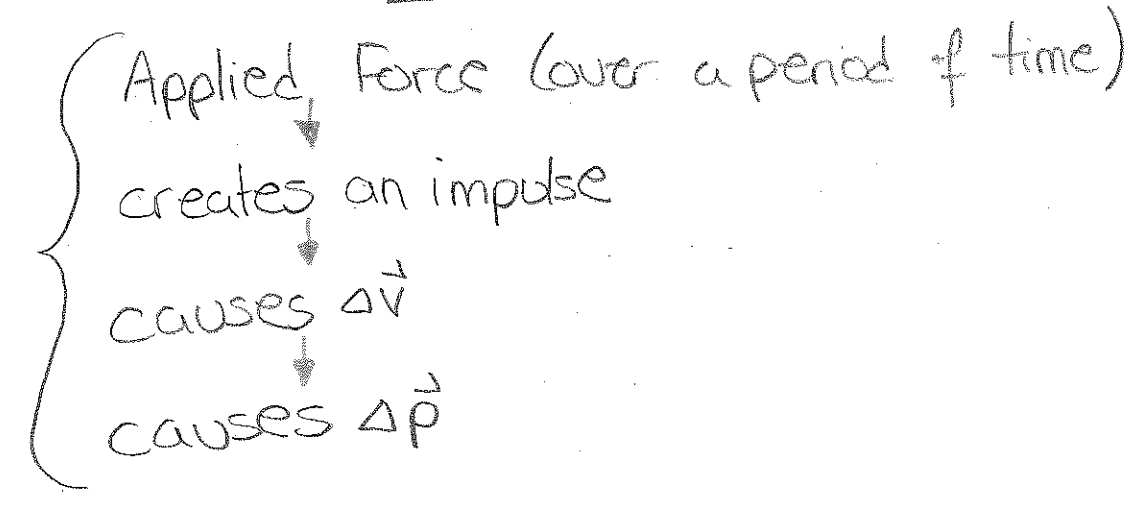 Applied Force (over a period of time)
creates an impulse
causes Δv⃗
causes Δp⃗